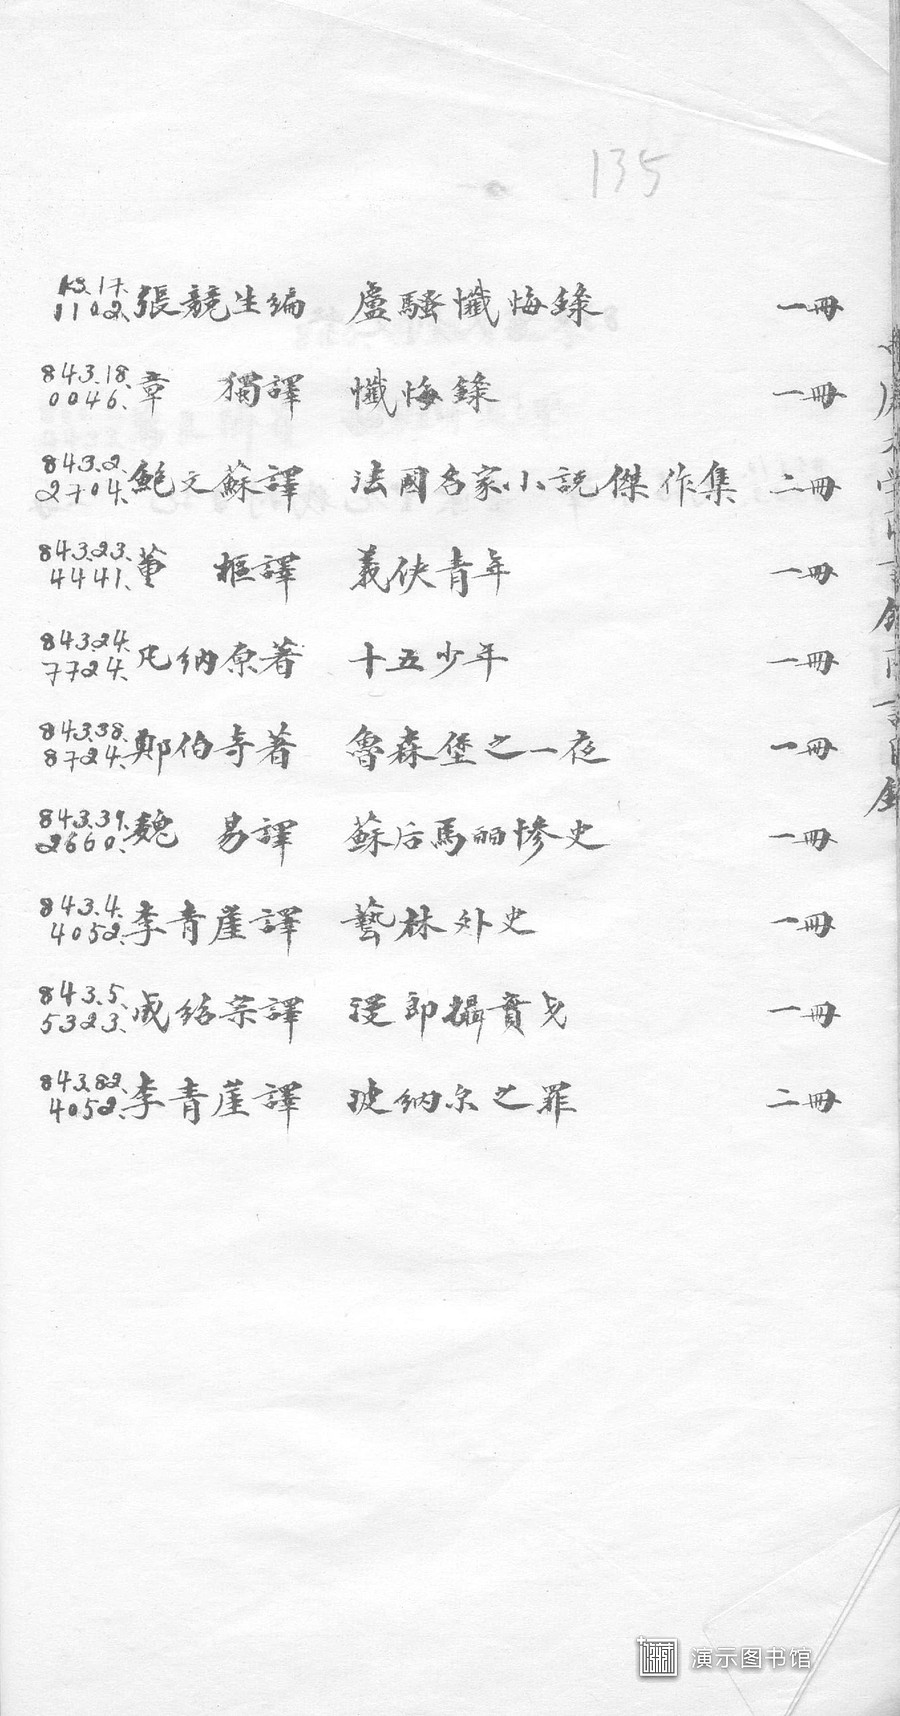 135
43.17.
1102. 張競生編 盧騷懺悔錄 一冊
843.18.
0046. 章 獨譯 懺悔錄 一冊
843.2.
2704. 鮑文蘇譯 法國名家小説傑作集 二冊
843.23.
4441. 董 樞譯 義俠青年 一冊
843.24.
7724. 凡納原著 十五少年 一冊
843.38.
8724. 鄭伯奇著 魯森堡之一夜 一冊
843.39.
2660. 魏 易譯 蘇后馬麗慘史 一冊
843.4.
4052. 李青崖譯 藝林外史 一冊
843.5.
5323. 成紹宗譯 漫郎攝實戈 一冊
843.82.
4052. 李青崖譯 波納尔之罪 二冊
演示图书馆